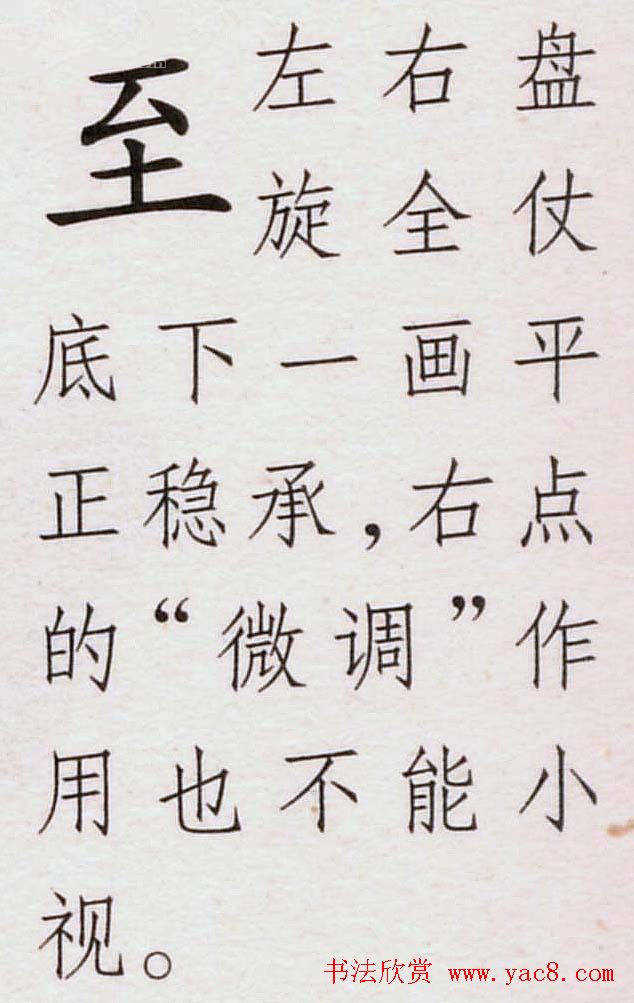 至
左右盘
旋全仗
底下一画平
正稳承,右点
的“微调”作
用也不能小
视。
书法欣赏 www.yac8.com